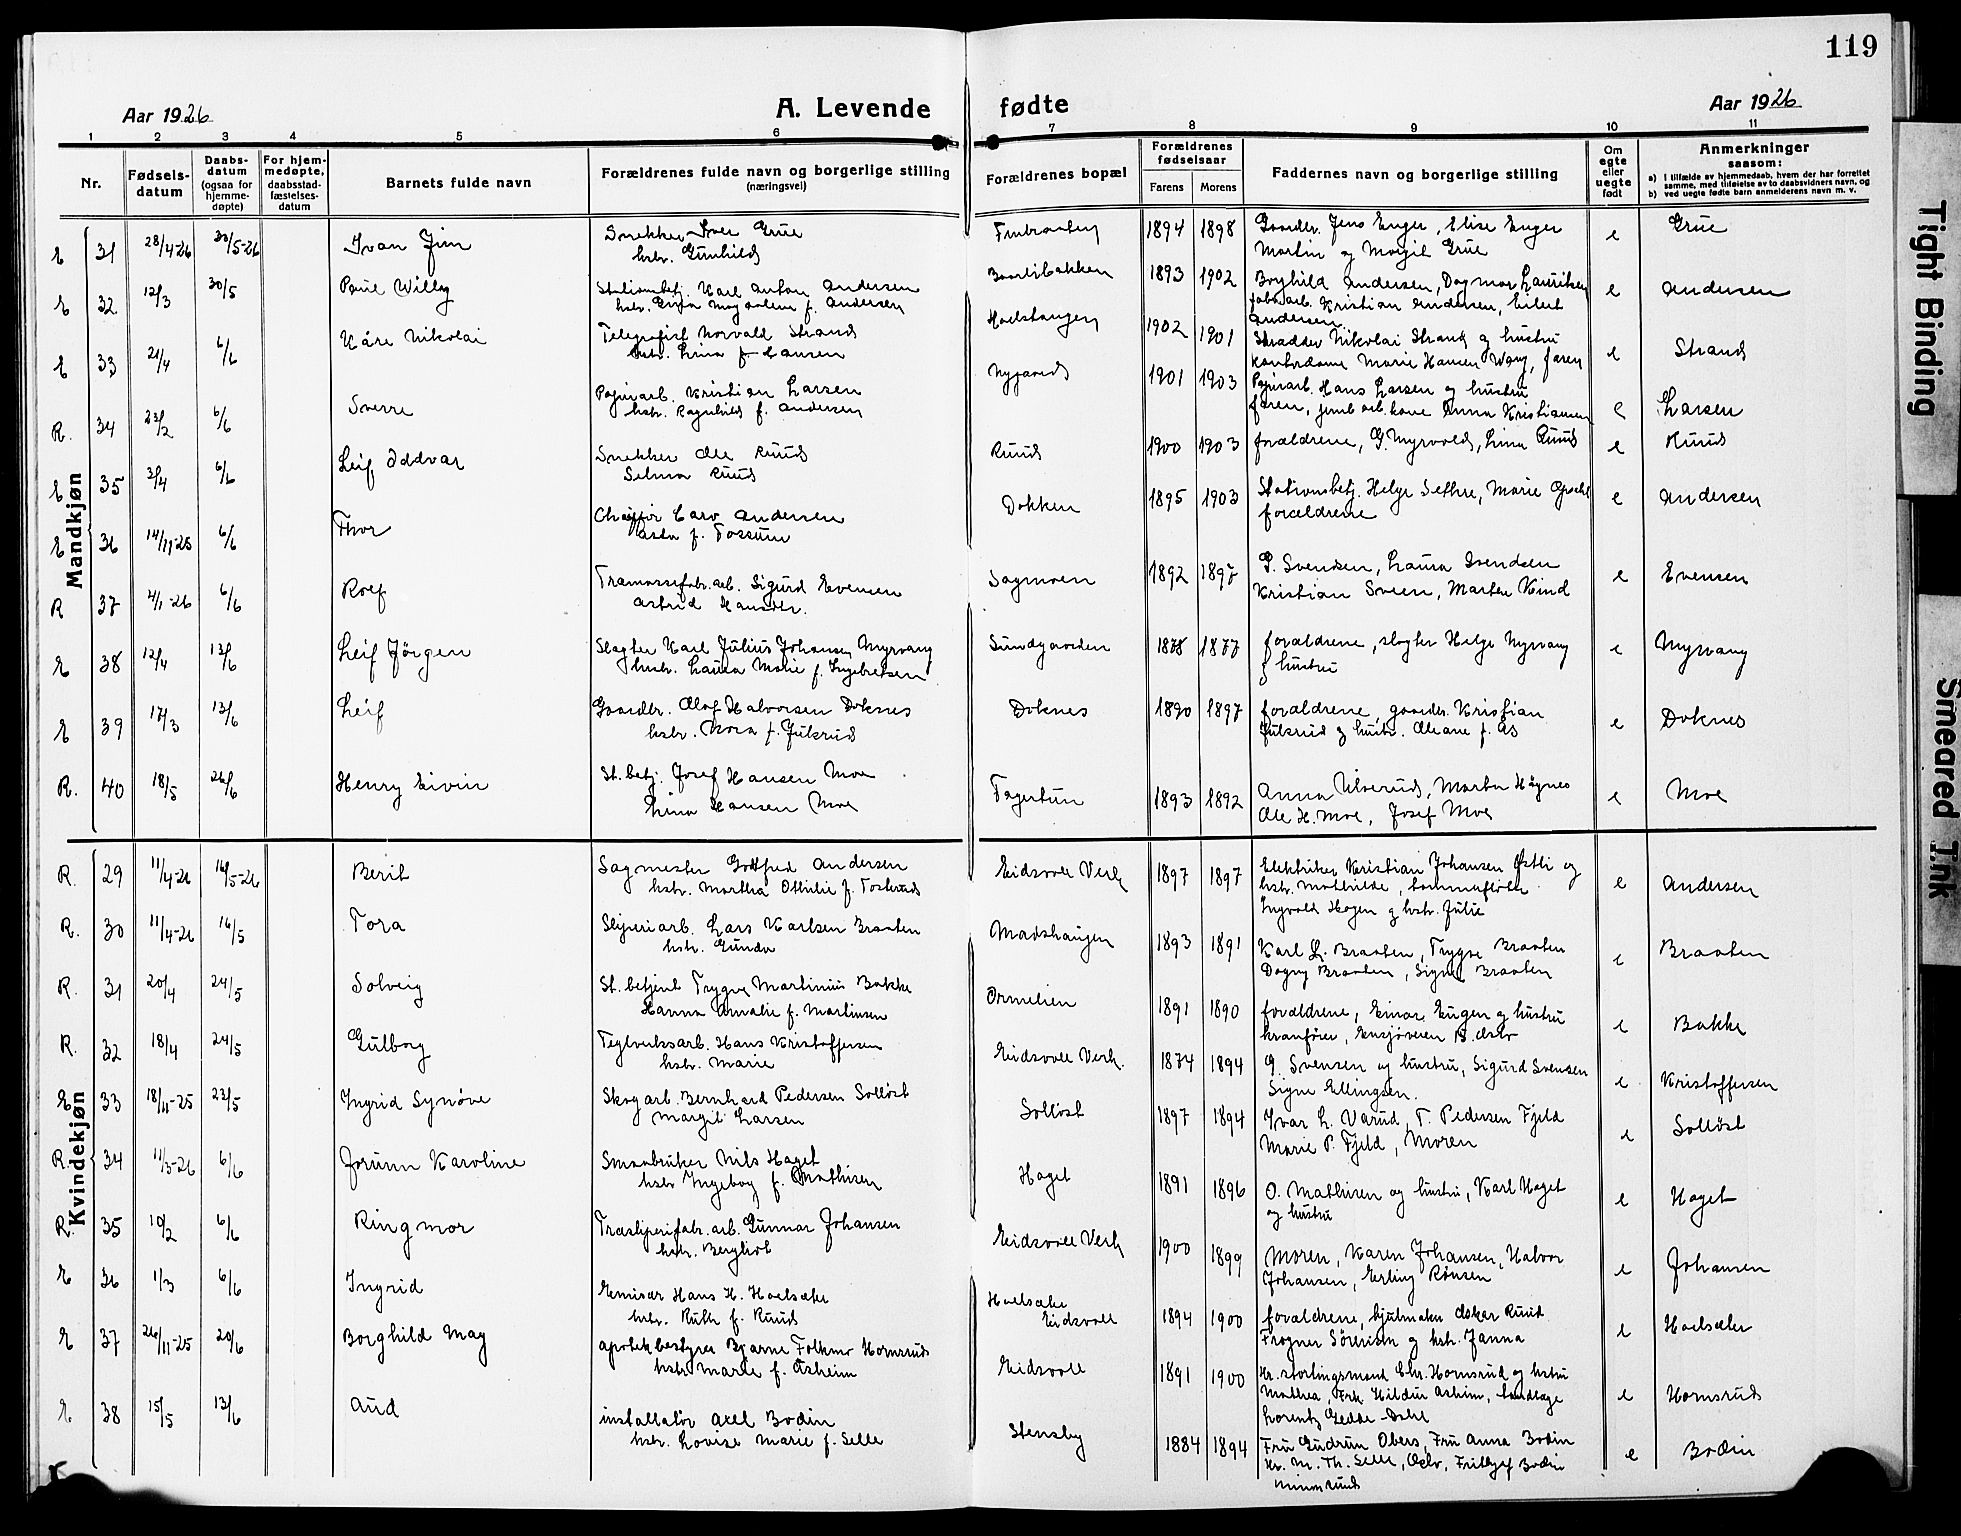 119
Aar 1926 A. Levende fødte Aar 1926
1 2 3 4 5 6 7 8 9 10 11
Nr. Fødselsdatum Daabsdatum (ogsaa for hjemmedøpte) For hjemmedøpte, daabsstadfæstelsesdatum Barnets fulde navn Forældrenes fulde navn og borgerlige stilling (næringsvei) Forældrenes bopæl Forældrenes fødselsaar Farens Morens Faddernes navn og borgerlige stilling Om egte eller uegte født Anmerkninger saasom:
a) i tilfælde av hjemmedaab, hvem der har forrettet samme, med tilføielse av to daabsvidners navn, og
b) ved uegte fødte barn anmelderens navn m. v.
Mandkjøn
E 31 28/4-26 30/5-26 Ivan Jim Snekker Iver Grue 1894 1898 Gaardbr. Jens Enger, Elise Enger e Grue
hstr. Gunhild Martin og Margit Grue
E 32 12/3 30/5 Paul Willy Stationsbetj. Karl Anton Andersen 1893 1902 Borghild Andersen, Dagmar Lauritsen e Andersen
hstr. Magdalene f. Andersen fabr.arb. Kristian Andersen, Eilert Andersen
E 33 21/4 6/6 Kåre Nikolai Telegrafist Norvald Strand Hoelstangen 1902 1901 Skrædder Nikolai Strand og hustru e Strand
hstr. Lina f. Hansen kontordame Marie Hansen Wang, faren
R. 34 23/2 6/6 Sverre Papirarb. Kristian Larsen Nygaard 1901 1903 Papirarb. Hans Larsen og hustru e Larsen
hstr. Ragnhild f. Andersen faren, jernb.arb. kone Anna Kristiansen
E 35 3/4 6/6 Leif Oddvar Snekker Ole Ruud Ruud 1900 1903 forældrene, G. Myrvold, Lina Ruud e Ruud
Selma Ruud
E 36 14/11-25 6/6 Thor Chaffør Caro Andersen Dokken 1895 1903 Stationsbetj. Helge Sethre, Marie Opsahl e Andersen
Asta f. Tossum forældrene
R 37 4/1-26 6/6 Rolf Tramassefabr.arb. Sigurd Evensen Sagmoen 1892 1897 G. Svendsen, Laura Svendsen e Evensen
Astrid Hansdtr. Kristian Sveen, Marthe Kind
E 38 12/4 13/6 Leif Jörgen Slagter Karl Julius Johansen Myrvang Sundgaarden 1878 1877 forældrene, slagter Helge Myrvang e Myrvang
hustr. Laura Marie f. Ingebretsen og hustru
E 39 17/3 13/6 Leif Gaardbr. Olaf Halvorsen Doknes Doknes 1890 1897 forældrene, gaardbr. Kristian e Doknes
hstr. Nora f. Julsrud Julsrud og hustr. Oleane f. Ås
R. 40 18/5 26/6 Henry Eivin St.betj. Josef Hansen Moe Fagertun 1893 1892 Anna Ulverud, Martha Hågnes e Moe
Lina Hansen Moe Ole H. Moe, Josef Moe
Kvindekjøn
R. 29 11/4-26 16/5-26 Berit Sagmester Gotfred Andersen Eidsvoll Verk 1897 1897 Elektriker Kristian Johansen Østli og e Andersen
hstr. Martha Ottilie f. Tosterud hstr. Mathilde,
Ingvald Hagen og hstr. Julie
R. 30 11/4-26 16/5 Tora Sliperiarb. Lars Karlsen Braaten Madshaugen 1893 1891 Karl L. Braaten, Trygve Braaten e Braaten
hstr. Gunda Dagny Braaten, Signe Braaten
R. 31 20/4 24/5 Solveig St.betjent Trygve Martinius Bakke Ormelien 1891 1890 forældrene, Einar Eugen og hustru e Bakke
Hanna Amalie f. Martinsen kranfører, Ensjøveien 13 Oslo
R. 32 18/4 24/5 Gulborg Teglverksarb. Hans Kristoffersen Eidsvoll Verk. 1874 1894 G. Svensen og hustru, Sigurd Svensen e Kristoffersen
hstr. Marie Signe Ellingsen.
E 33 18/11-25 23/5 Ingrid Synøve Skogarb. Bernhard Pedersen Solløst Solløst 1897 1894 Ivar L. Varud, T. Pedersen Fjeld e Solløst
Margit Larsen Marie P. Fjeld, Moren
R. 34 11/3-26 6/6 Jorunn Karoline Smaabruker Nils Haget Haget 1891 1896 O. Mathisen og hustru, Karl Haget e Haget
hstr Ingeborg f. Mathisen og hustru
R. 35 10/2 6/6 Ringmor Træsliperifabr.arb. Gunnar Johansen Eidsvoll Verk 1900 1899 Moren, Karen Johansen, Halvor e Johansen
hstr. Bergliot Johansen, Erling Rønsen
E 36 1/3 6/6 Ingrid Emisær Hans H. Hoelsæter Hoelsæter Eidsvoll 1894 1900 forældrene, hjulmaker Oskar Ruud e Hoelsæter
hstr. Ruth f. Ruud Frogner Sörensen og hstr. Janna
E 37 26/11-25 20/6 Borghild May apotekbestyrer Bjarne Folkmar Hornsrud Eidsvoll 1891 1900 Hr. stortingsmand Chr. Hornsrud og hstru e Hornsrud
hstr. Marie f. Åsheim Mathea, Frk. Hildur Asheim, tandlæge
Lorentz Gedde-Dahl
E 38 15/5 13/6 Aud installatör Axel Bodin Stensby 1884 1894 Fru Gudrun Obers, Fru Anna Bodin e Bodin
hstr. Lovise Marie f. Selle Hr. M. Th. Selle, Oslo, Fritjof Bodin
Tight Binding
Smeared Ink